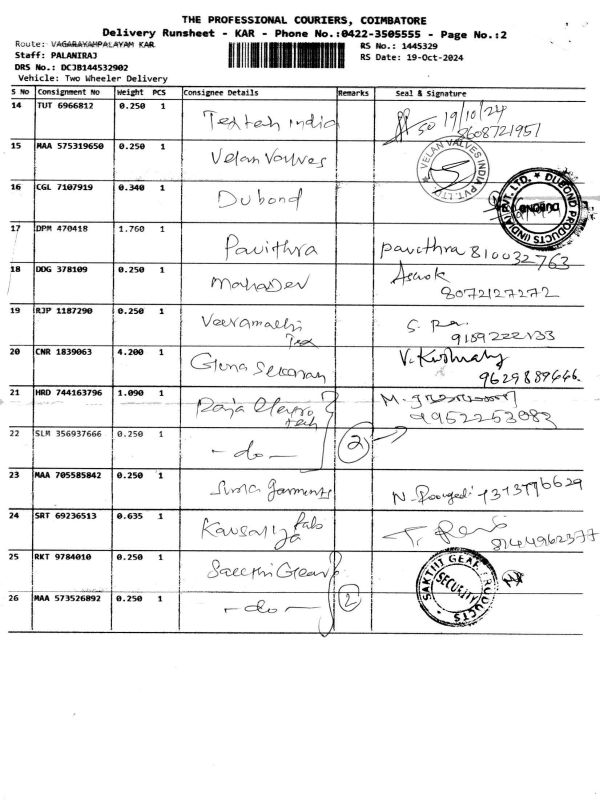 THE PROFESSIONAL COURIERS, COIMBATORE
Delivery Runsheet - KAR - Phone No.:0422-3505555 - Page No.:2
Route: VAGARAYAMPALAYAM KAR
RS No.: 1445329
Staff: PALANIRAJ
RS Date: 19-Oct-2024
DRS No.: DCJB144532902
Vehicle: Two Wheeler Delivery
S No Consignment No Weight PCS Consignee Details Remarks Seal & Signature
14 TUT 6966812 0.250 1 Textech india 19/10/24
8608721951
15 MAA 575319650 0.250 1 Velan Valves VELAN VALVES INDIA PVT. LTD.
16 CGL 7107919 0.340 1 Dubond DUBOND PRODUCTS (INDIA) PVT. LTD.
17 DPM 470418 1.760 1 Pavithra pavithra 810032763
18 DDG 378109 0.250 1 Mahadev Ashok
8072127272
19 RJP 1187290 0.250 1 Veeramathi Tex S.
9159222133
20 CNR 1839063 4.200 1 Guna Sekaran
9629889646.
21 HRD 744163796 1.090 1 Raja tech M.
9952253083
22 SLM 356937666 0.250 1 - do - 2
23 MAA 705585842 0.250 1 Suma garments N.
24 SRT 69236513 0.635 1 Kausalya Fabs T.
8144962377
25 RKT 9784010 0.250 1 Sakthi Gear SAKTHI GEAR PRODUCTS SECURITY
26 MAA 573526892 0.250 1 - do - 2